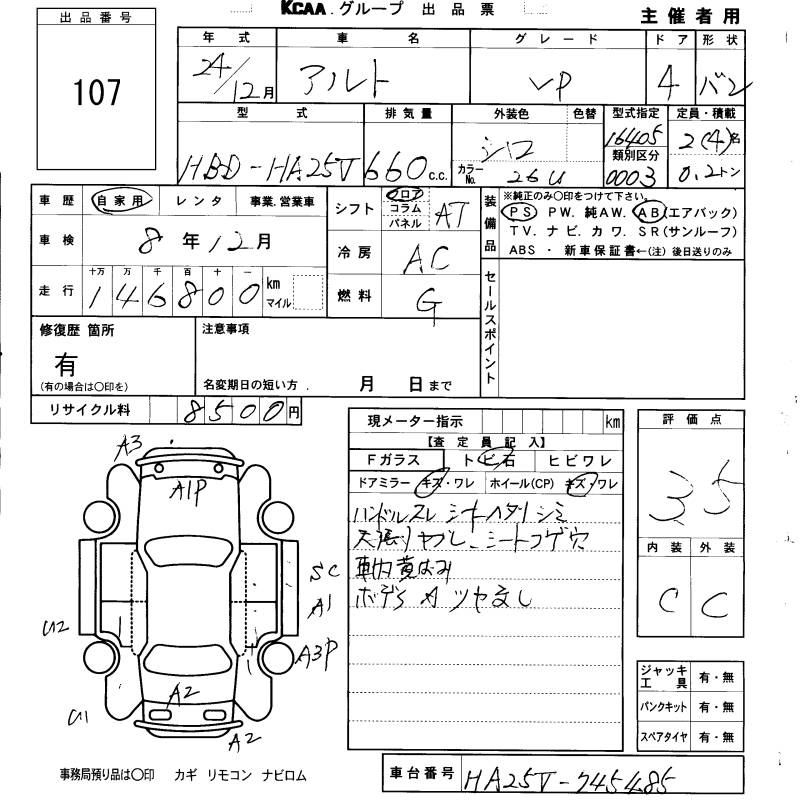 KCAA.グループ 出品票
主催者用
出品番号
107
年式 車名 グレード ドア 形状
24/12月 アルト VP 4 バン
型式 排気量 外装色 色替 型式指定 定員・積載
HBD-HA25V 660 c.c. シロ 16405 2(4)名
カラーNo. 26U 類別区分 0003 0.2トン
車歴 自家用 レンタ 事業.営業車
車検 8年12月
走行 十万 万 千 百 十 一
146800 km マイル
シフト フロア コラム パネル AT
冷房 AC
燃料 G
装備品
※純正のみ〇印をつけて下さい。
PS PW. 純AW. AB(エアバック)
TV. ナビ. カワ. SR(サンルーフ)
ABS ・ 新車保証書←(注) 後日送りのみ
セールスポイント
修復歴 箇所
有
(有の場合は〇印を)
注意事項
名変期日の短い方. 月 日まで
リサイクル料 8500円
現メーター指示 km
【査定員記入】
Fガラス トビ石 ヒビワレ
ドアミラー キズ・ワレ ホイール(CP) キズ・ワレ
ハンドルスレ シートヘタリシミ
天張りヤブレ、シートコゲ穴
車内黄ばみ
ボデーS A ツヤ無し
評価点
3.5
内装 外装
C C
A3
A1P
SC
A1
U2
A3P
A2
U1
A2
ジャッキ工具 有・無
パンクキット 有・無
スペアタイヤ 有・無
事務局預り品は〇印 カギ リモコン ナビロム
車台番号 HA25V-745485